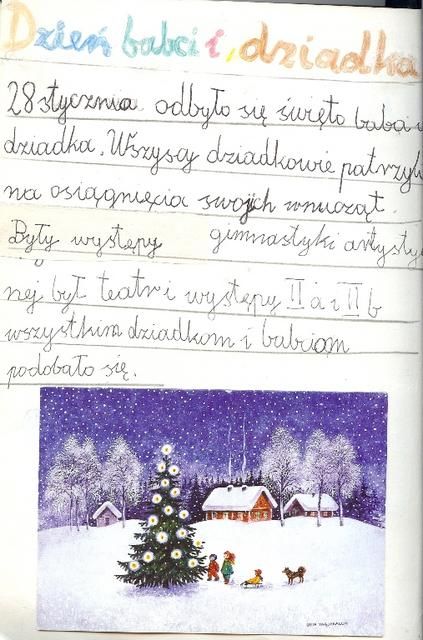 Dzień babci i, dziadka
28 stycznia odbyło się święto baba i
dziadka. Wszyscy dziadkowie patrzyli
na osiągnięcia swojich wnucząt.
Były występy gimnastyki artysty
nej był teatr i występy II a i II b
wszystkim dziadkom i babciom
podobało się.